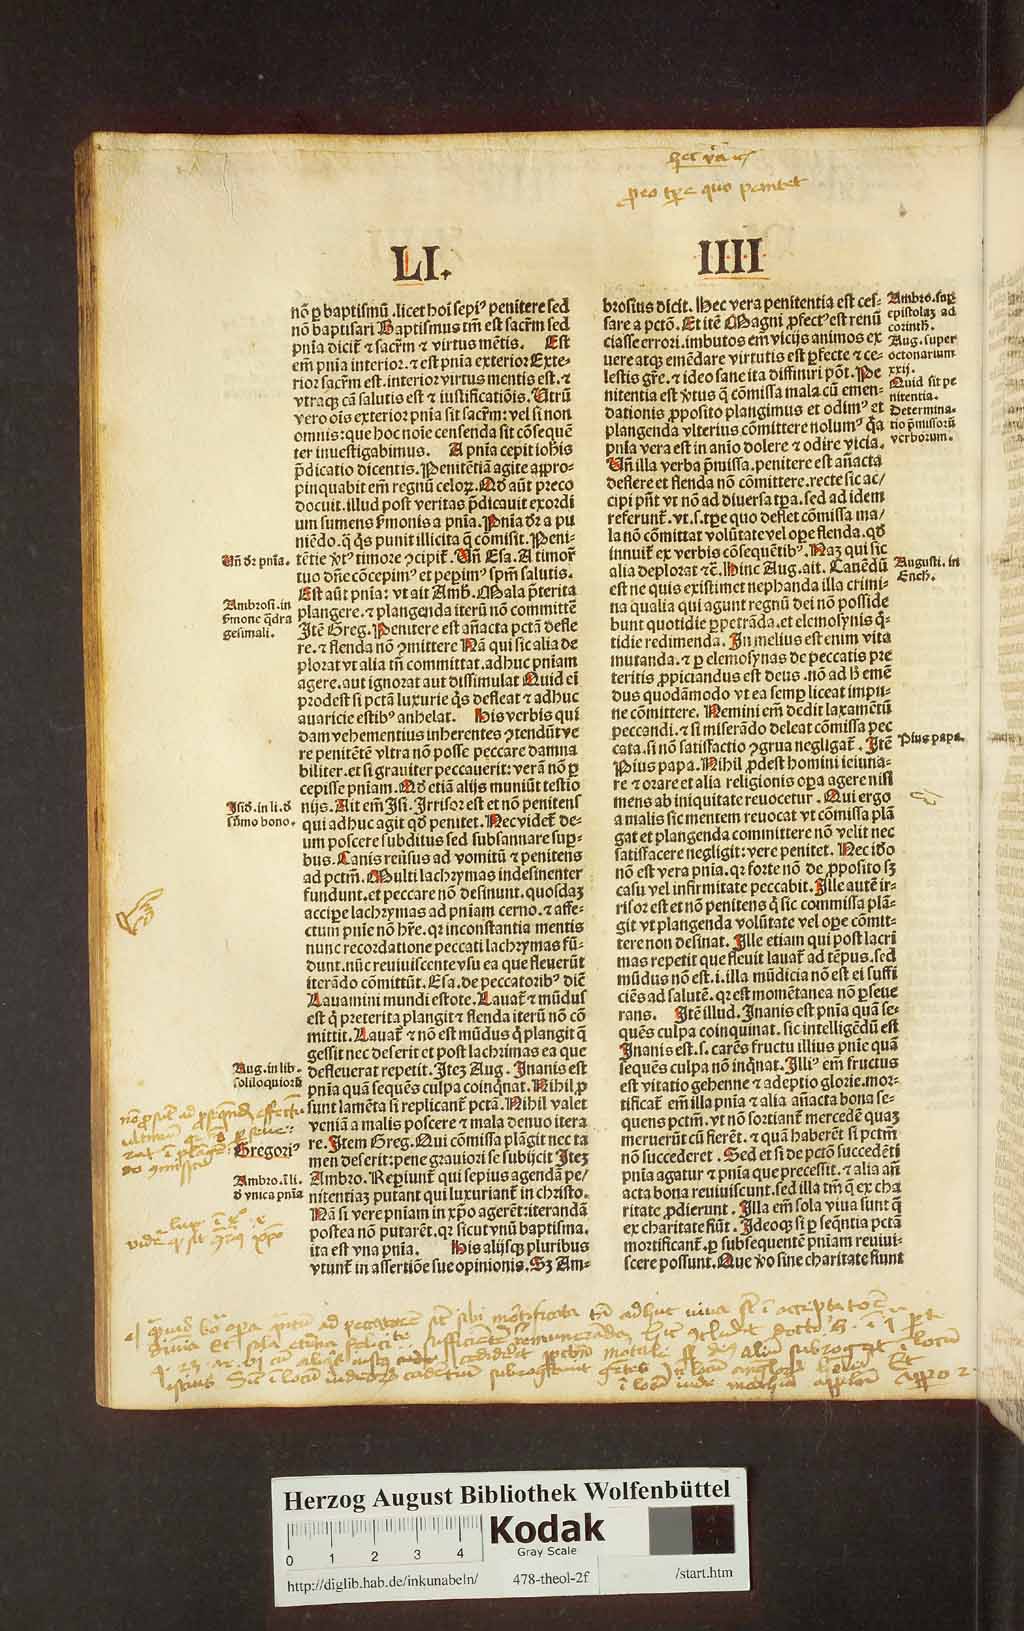 LI.
IIII
nō ꝑ baptismū .licet hoi sepiꝰ penitere sed
nō baptisari Baptismus tm̄ est sacrm̄ sed
pn̄ia dicit̄ ⁊ sacrm̄ ⁊ virtus mētis. Est
em̄ pn̄ia interior. ⁊ est pn̄ia exterior Exte-
rior sacrm̄ est. interior virtus mentis est. ⁊
vtraqꝫ cā salutis est ⁊ iustificatiōis. Utrū
vero oīs exterior pn̄ia sit sacrm̄: vel si non
omnis: que hoc noīe censenda sit cōsequē
ter inuestigabimus. A pn̄ia cepit ioh̄is
p̄dicatio dicentis. Penitētiā agite appro-
pinquabit em̄ regnū celoꝝ. Qd̄ aūt preco
docuit. illud post veritas p̄dicauit exordi
um sumens s̄monis a pn̄ia. Pn̄ia dr̄ a pu
niēdo. q̄ q̄s punit illicita q̄ cōmisit. Peni-
tētie v̄tꝰ timore ꝯcipit̄. Un̄ Esa. A timor̄
tuo dn̄e cōcepimꝰ et peꝑimꝰ sp̄m salutis.
Est aūt pn̄ia: vt ait Amb̄. Mala p̄terita
plangere. ⁊ plangenda iterū nō committē
Itē Greg. Penitere est an̄acta pctā defle
re. ⁊ flenda nō ꝯmittere Nā qui sic alia de
plorat vt alia tn̄ committat. adhuc pn̄iam
agere. aut ignorat aut dissimulat Quid ei
prodest si pctā luxurie q̄s defleat ⁊ adhuc
auaricie estibꝰ anhelat. His verbis qui
dam vehementius inherentes ꝯtendūt ve
re penitētē vltra nō posse peccare damna
biliter. et si grauiter peccauerit: verā nō ꝑ
cepisse pn̄iam. Qd̄ etiā alijs muniūt testio
nijs. Ait em̄ Isi. Irrisor est et nō penitens
qui adhuc agit qd̄ penitet. Nec videt̄ de-
um poscere subditus sed subsannare suꝑ-
bus. Canis reūsus ad vomitū ⁊ penitens
ad pctm̄. Multi lachrymas indesinenter
fundunt. et peccare nō desinunt. quosdaꝫ
acciꝑe lachrymas ad pn̄iam cerno. ⁊ affe-
ctum pn̄ie nō hr̄e. qꝛ inconstantia mentis
nunc recordatione peccati lachrymas fū-
dunt. nūc reuiuiscente vsu ea que fleuerūt
iterādo cōmittūt. Esa. de peccatoribꝰ diē
Lauamini mundi estote. Lauat̄ ⁊ mūdus
est q̄ preterita plangit ⁊ flenda iterū nō cō
mittit. Lauat̄ ⁊ nō est mūdus q̄ plangit q̄
gessit nec deserit et post lachrimas ea que
defleuerat repetit. Iteꝫ Aug. Inanis est
pn̄ia quā sequēs culpa coinq̄nat. Nihil ꝓ
sunt lamēta si replicant̄ pctā. Nihil valet
veniā a malis poscere ⁊ mala denuo itera
re. Item Greg. Qui cōmissa plāgit nec ta
men deserit: pene grauiori se subijcit Iteꝫ
Ambro. Reꝑiunt̄ qui sepius agendā pe/
nitentiaꝫ putant qui luxuriant̄ in christo.
Nā si vere pniam in xp̄o agerēt: iterandā
postea nō putarēt. qꝛ sicut vnū baptisma.
ita est vna pn̄ia. His alijsqꝫ pluribus
vtunt̄ in assertiōe sue opinionis. Sꝫ Am-
Un̄ dr̄ pn̄ia.
Ambrosi. in
s̄monc q̄dra
gesimali.
Isid̄. in li. d̄
sūmo bono.
Aug. in lib.
soliloquiorū
Gregoriꝰ
Ambro. ī li.
d̄ vnica pn̄ia
brosius dicit. Hec vera penitentia est ces-
sare a pctō. Et itē Magni ꝓfectꝰ est renū
ciasse errori. imbutos em̄ vicijs animos ex
uere atqꝫ emēdare virtutis est ꝑfecte ⁊ ce-
lestis gr̄e. ⁊ ideo sane ita diffiniri pōt. Pe
nitentia est v̄tus q̄ cōmissa mala cū emen-
dationis ꝓposito plangimus et odimꝰ et
plangenda vlterius cōmittere nolumꝰ q̄a
pn̄ia vera est in an̄io dolere ⁊ odire vicia.
Un̄ illa verba p̄missa. penitere est an̄acta
deflere et flenda nō cōmittere. recte sic ac/
cipi pn̄t vt nō ad diuersa tꝑa. sed ad idem
referunt̄. vt .s. tꝑe quo deflet cōmissa ma/
la nō cōmittat volūtate vel oꝑe flenda. qd̄
innuit̄ ex verbis cōsequētibꝰ. Naꝫ qui sic
alia deplorat ⁊c̄. Hinc Aug. ait. Cauēdū
est ne quis existimet nephanda illa crimi-
na qualia qui agunt regnū dei nō posside
bunt quotidie ꝑpetrāda. et elemosynis q̄-
tidie redimenda. In melius est enim vita
mutanda. ⁊ ꝑ elemosynas de peccatis pre
teritis ꝓpiciandus est deus. nō ad h̄ emē
dus quodāmodo vt ea semꝑ liceat impu-
ne cōmittere. Nemini em̄ dedit laxamētū
peccandi. ⁊ si miserādo deleat cōmissa pec
cata. si nō satisfactio ꝯgrua negligat̄. Itē
Pius papa. Nihil ꝓdest homini ieiuna-
re ⁊ orare et alia religionis oꝑa agere nisi
mens ab iniquitate reuocetur. Qui ergo
a malis sic mentem reuocat vt cōmissa plā
gat et plangenda committere nō velit nec
satisfacere negligit: vere penitet. Nec id̄o
nō est vera pn̄ia. qꝛ forte nō de ꝓposito sꝫ
casu vel infirmitate peccabit. Ille autē ir-
risor est et nō penitens q̄ sic commissa plā-
git vt plangenda volūtate vel oꝑe cōmit-
tere non desinat. Ille etiam qui post lacri
mas repetit que fleuit lauat̄ ad tēpus. sed
mūdus nō est. i. illa mūdicia nō est ei suffi
ciēs ad salutē. qꝛ est momētanea nō ꝑseue
rans. Itē illud. Inanis est pn̄ia quā se-
quēs culpa coinquinat. sic intelligēdū est
Inanis est .s. carēs fructu illius pn̄ie quā
sequēs culpa nō inq̄nat. Illiꝰ em̄ fructus
est vitatio gehenne ⁊ adeptio glorie. mor-
tificat̄ em̄ illa pn̄ia ⁊ alia an̄acta bona se-
quens pctm̄. vt nō sortiant̄ mercedē quaꝫ
meruerūt cū fierēt. ⁊ quā haberēt si pctm̄
nō succederet. Sed et si de pctō succedēti
pn̄ia agatur ⁊ pn̄ia que precessit. ⁊ alia an̄
acta bona reuiuiscunt. sed illa tm̄ q̄ ex cha
ritate ꝓdierunt. Illa em̄ sola viua sunt q̄
ex charitate fiūt. Ideoqꝫ si ꝑ seq̄ntia pctā
mortificant̄. ꝑ subsequentē pn̄iam reuiui-
scere possunt. Que v̄o sine charitate fiunt
Ambro. suꝑ
epistolaꝫ ad
corinth̄.
Aug. super
octonarium
xxij.
Quid sit pe
nitentia.
Determina-
tio p̄missorū
verborum.
Augusti. in
Ench̄.
Pius papa.
Herzog August Bibliothek Wolfenbüttel
Kodak
Gray Scale
0 1 2 3 4
http://diglib.hab.de/inkunabeln/ 478-theol-2f /start.htm